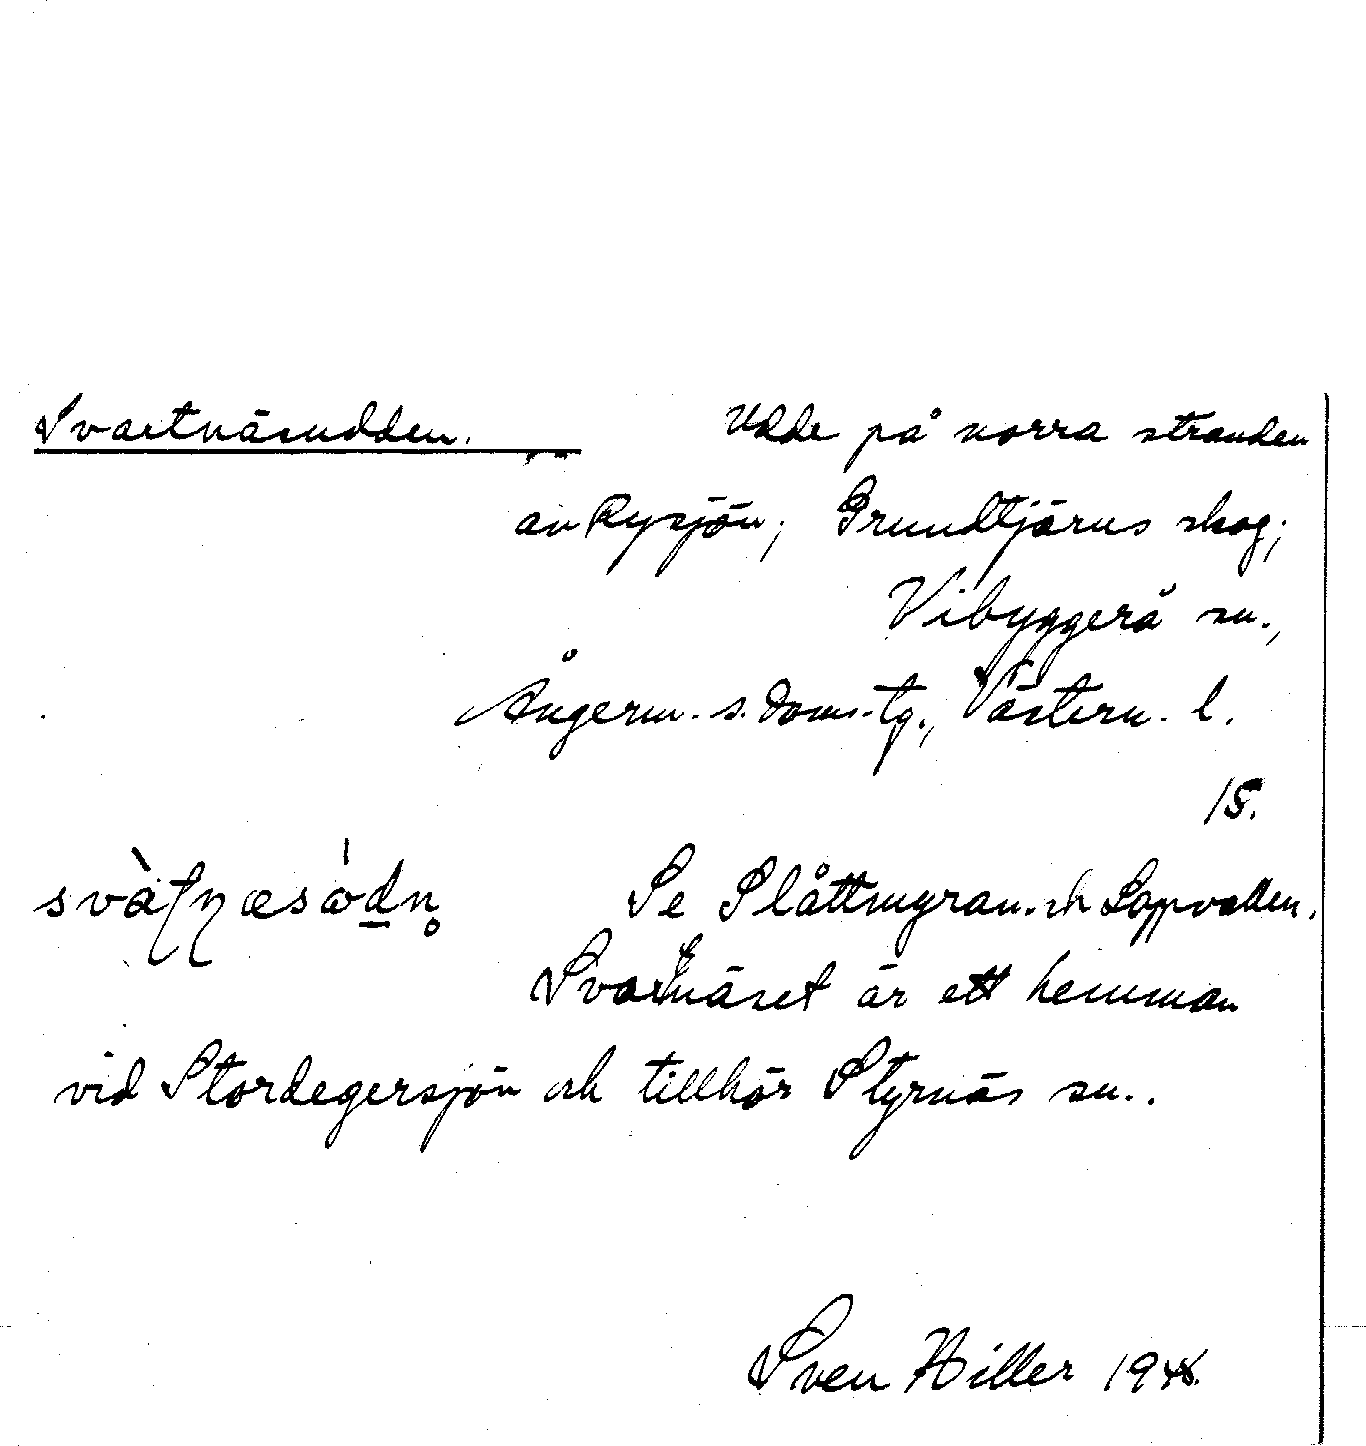 Svartnäsudden.
Udde på norra stranden
av Rysjön; Grundtjärns skog;
Vibyggerå sn.,
Ångerm. s. doms.-tg., Västern. l.
15.
Se Slåttmyran och Loppvallen.
Svartnäset är ett hemman
vid Stordegersjön och tillhör Styrnäs sn..
Sven Hiller 194